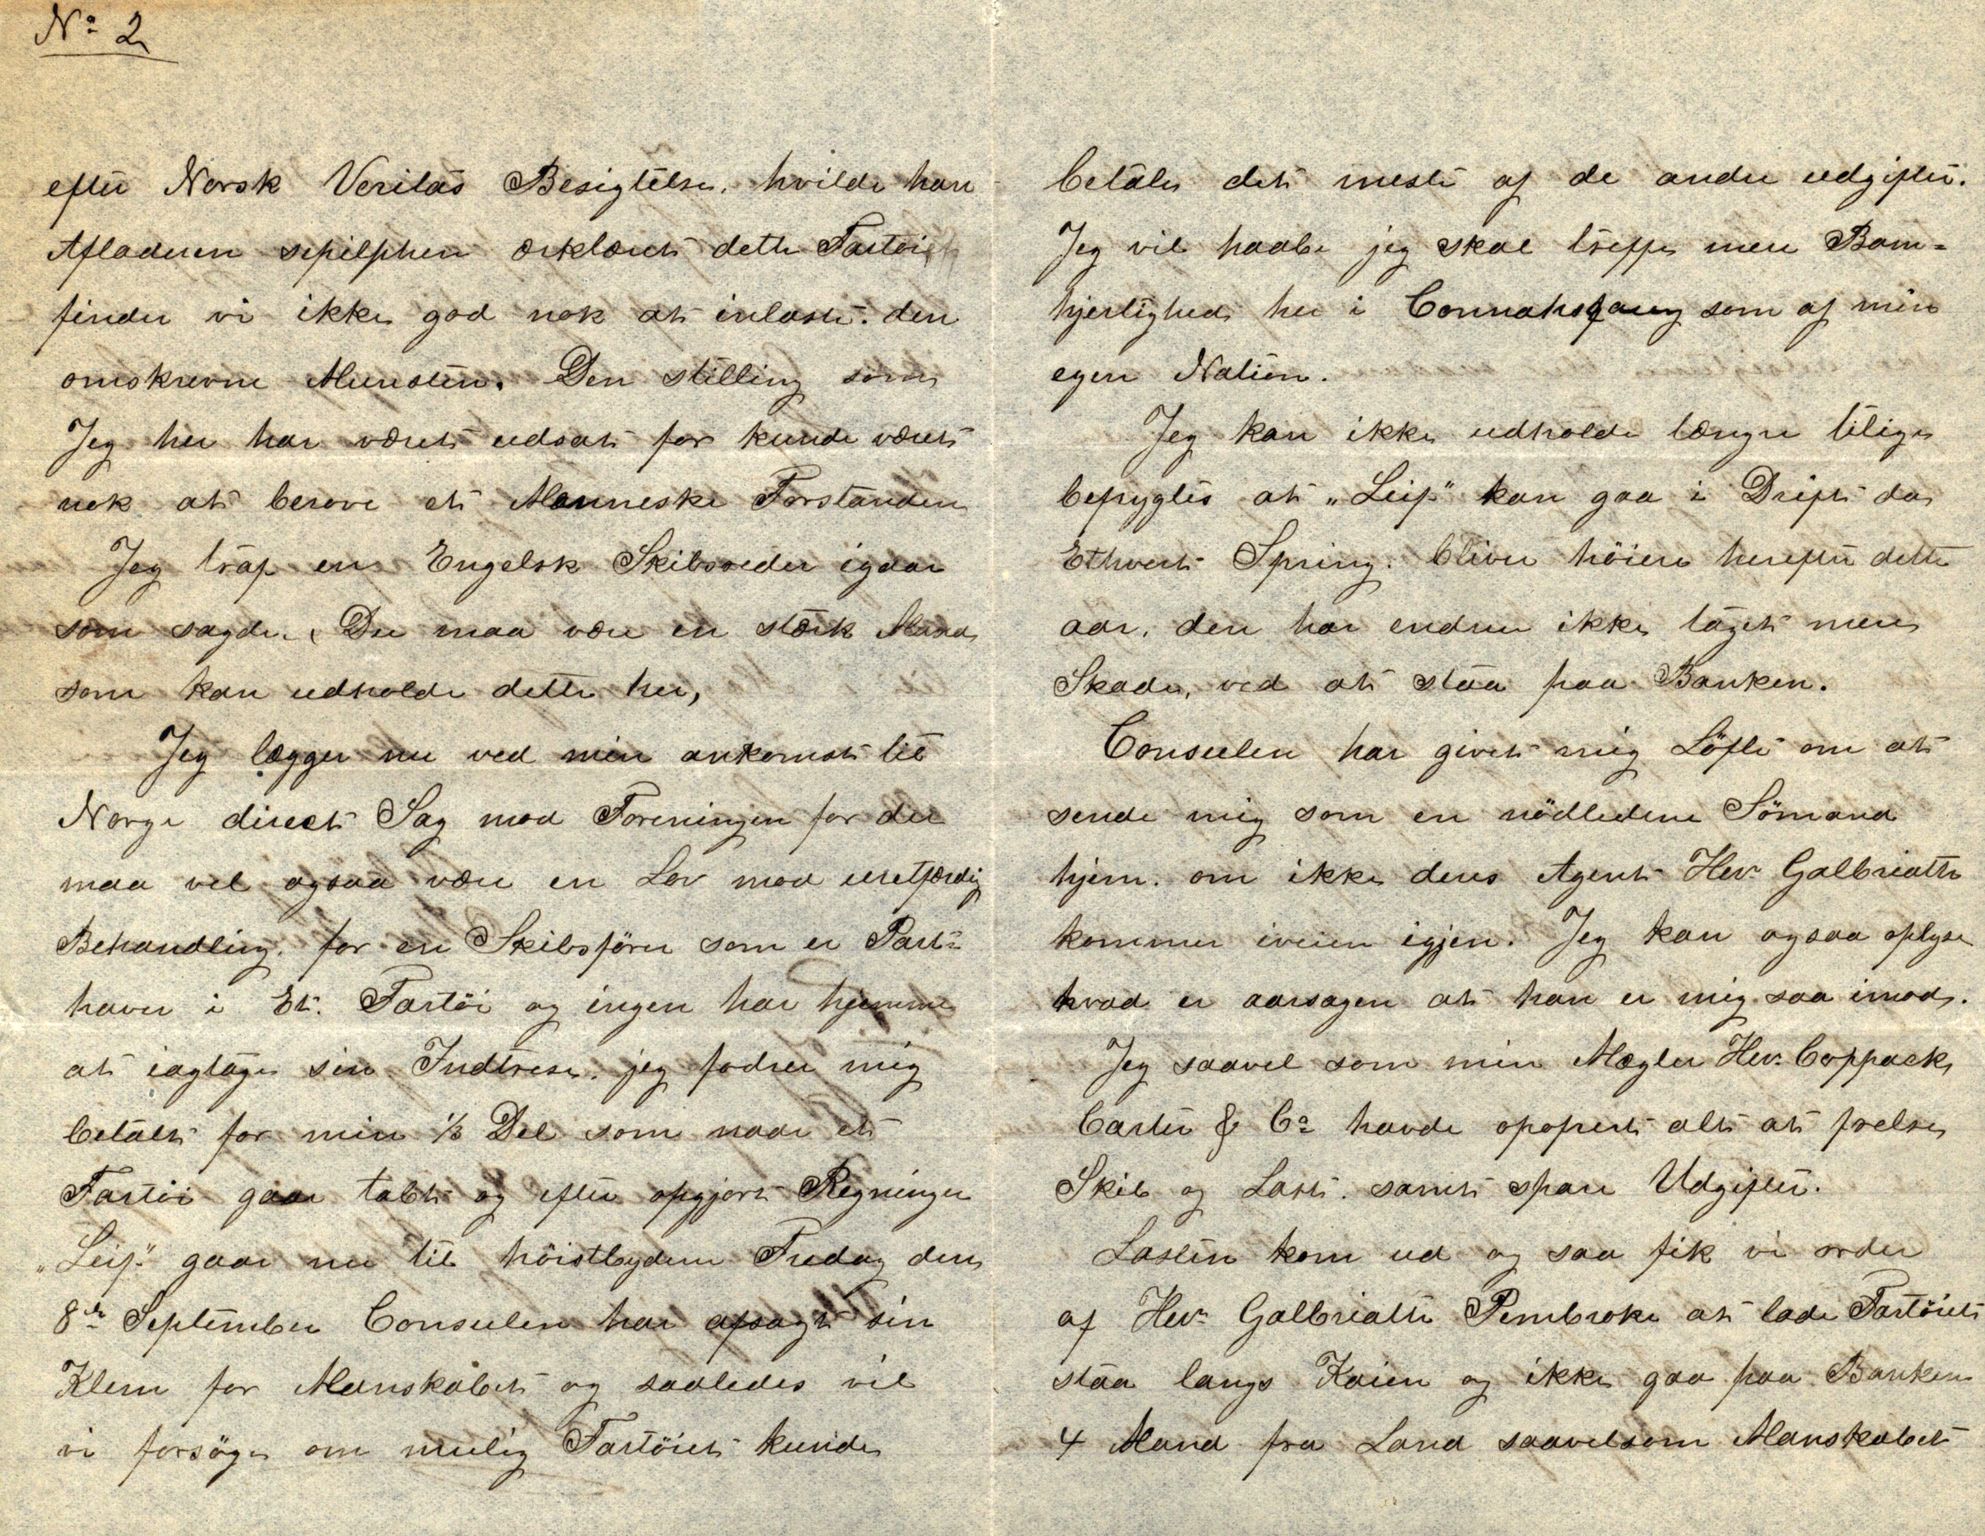 No 2
efter Norsk Veritas Besigtelse. hvilde han
Afladeren erklæret dette Fartöi
finder vi ikke god nok at inlaste. den
omskrevne Mursten. Den stilling som
Jeg her har været udsat for kunde været
nok at berove et Menneske Forstanden
Jeg traf en Engelsk Skibsreder igaar
som sagde. De maa være en stærk Mand
som kan udholde dette her,
Jeg lægger nu ved min ankomst til
Norge direct Sag mod Foreningen for der
maa vel ogsaa være en Lov mod uretfærdig
Behandling. for en Skibsförer som er Part-
haver i Et. Fartöi og ingen har hjemme
at iagtage sin Indtrese. jeg fodrer mig
betalt for min 1/3 Del som naar et
Fartöi gaar tabt og efter opgjort Regninger
"Leif" gaar nu til höistbydene Fredag den
8de September Consulen har afsagt sin
Klem for Manskabet og saaledes vil
vi forsöge om mulig Fartöiet kunde
betale det meste af de andre udgifter.
Jeg vil haabe jeg skal treffe mere Bam-
hjertighed her i Connahsquay som af min
egen Nation.
Jeg kan ikke udholde længre
at "Leif" kan gaa i Drift da
Ethvert Spring. bliver höiere herefter dette
aar. den har endnu ikke taget mere
Skade, ved at staa paa Banken.
Consulen har givet mig Löfte om at
sende mig som en nödledene Sömand
hjem. om ikke deres Agent Herr Galbriatte
kommer iveien igjen. Jeg kan ogsaa oplyse
hvad er aarsagen at han er mig saa imod.
Jeg saavel som min Mægler Herr Coppack
Carter & Co havde opofret alt at frelse
Skib og Last. samt spare Udgifter.
Lasten kom ud og saa fik vi order
af Herr Galbriatte Pembroke at lade Fartöiet
staa langs Kaien og ikke gaa paa Banken
4 Mand fra Land saavelsom Manskabet